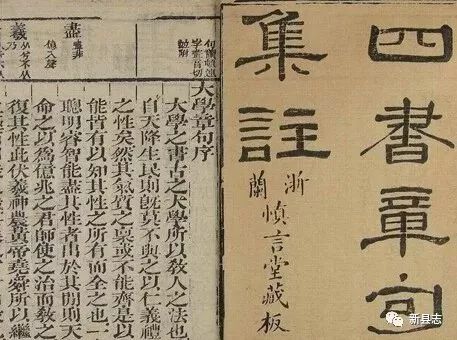 四書章句
集註
浙蘭
慎言堂藏板
盡
羲
大學章句序
大學之書古之大學所以教人之法也
自天降生民則既莫不與之以仁義禮
之性矣然其氣質之稟或不能齊是以
能皆有以知其性之所有而全之也一
聰明睿智能盡其性者出於其閒則天
命之以為億兆之君師使之治而教之
復其性此伏羲神農黃帝堯舜所以繼
新县志